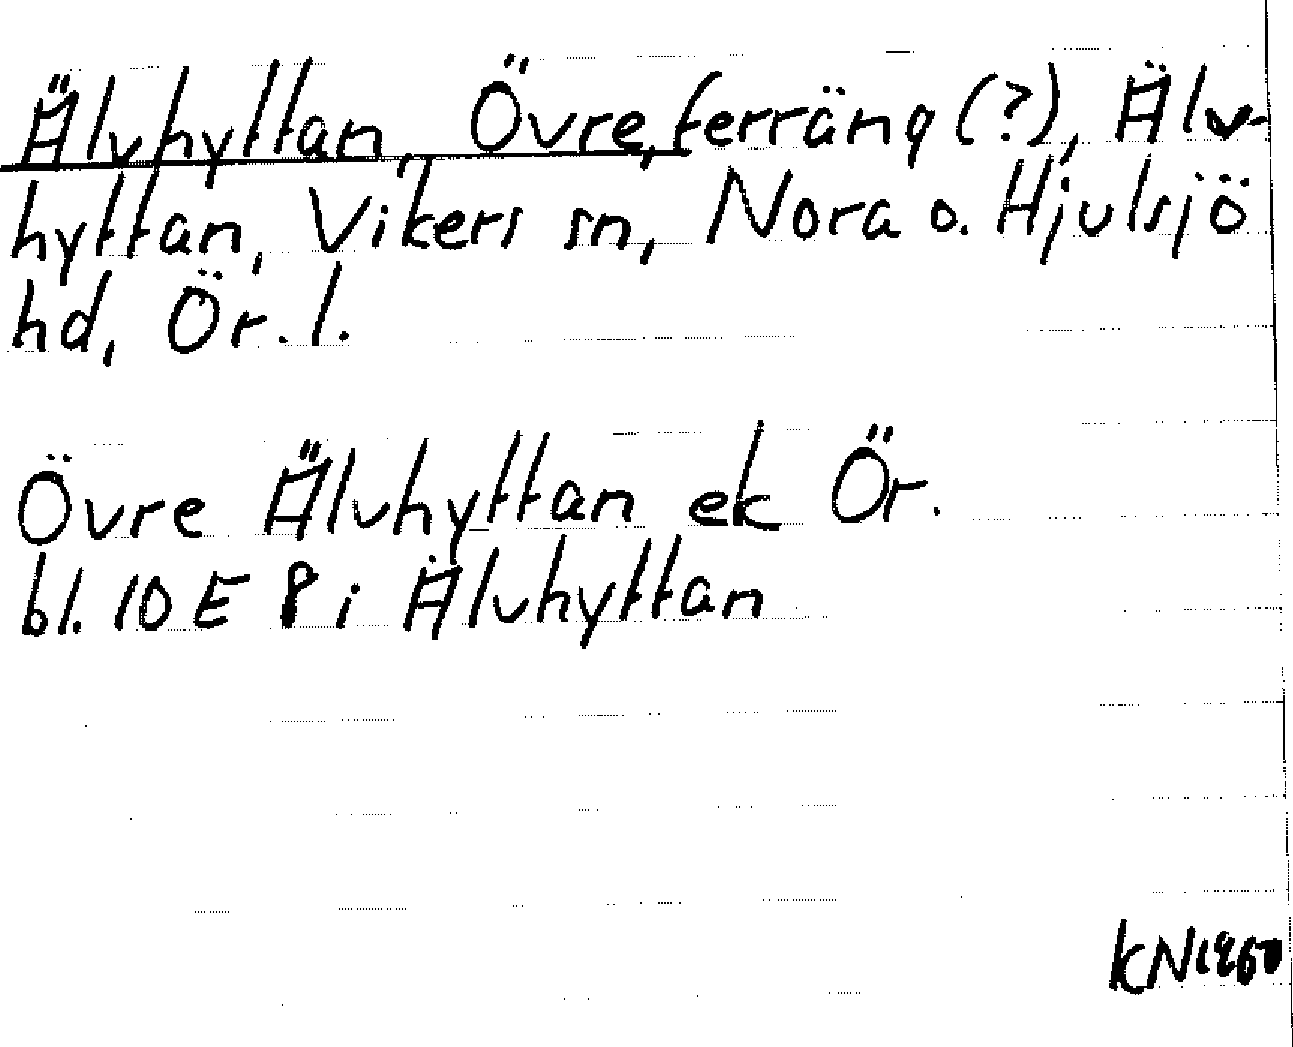 Älvhyttan, Övre, terräng (?), Älv-
hyttan, Vikers sn, Nora o. Hjulsjö
hd, Ör. l.
Övre Älvhyttan ek Ör.
bl. 10 E P i Älvhyttan
KN 1960